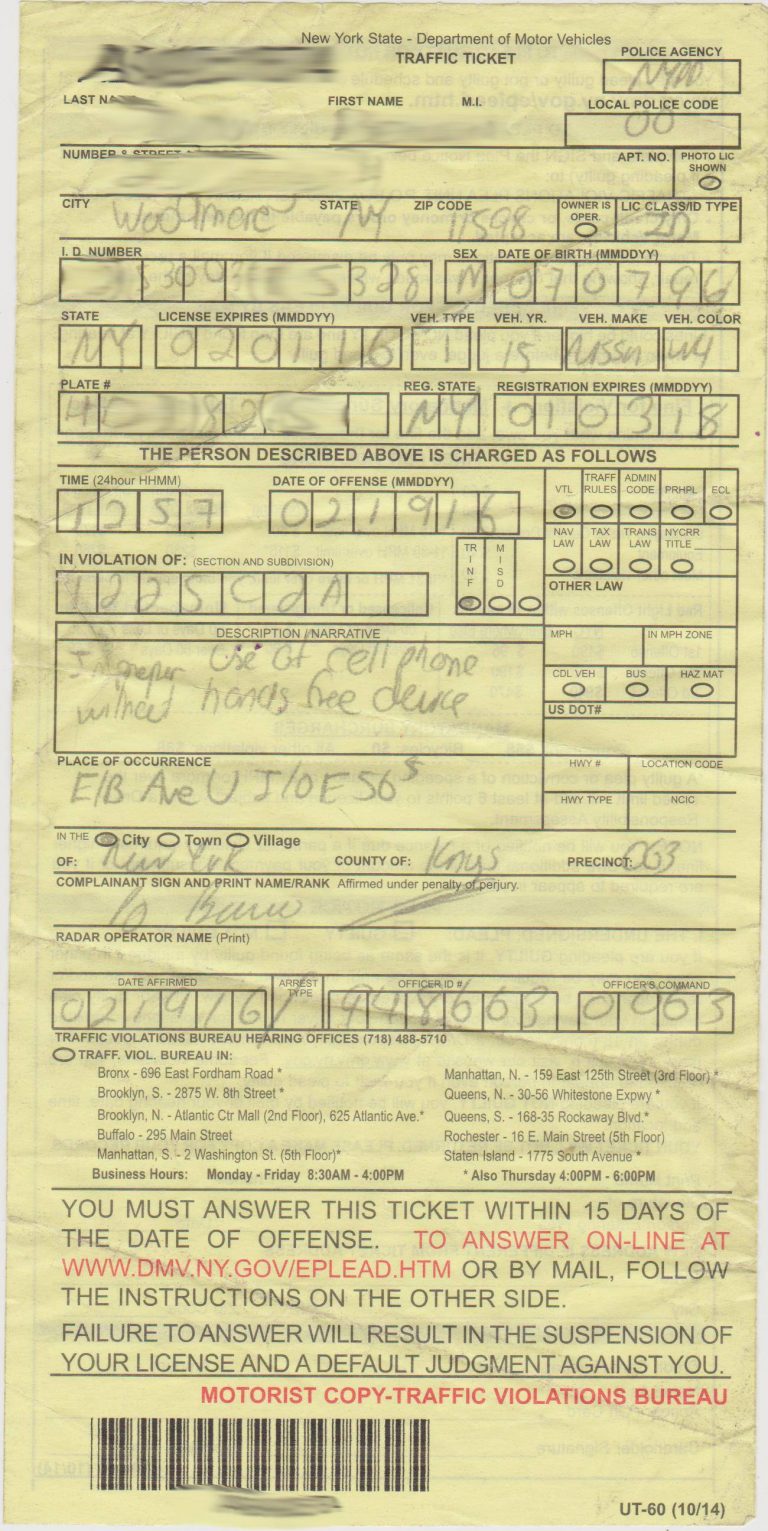 New York State - Department of Motor Vehicles
TRAFFIC TICKET
POLICE AGENCY
NYPD
LAST
FIRST NAME M.I.
LOCAL POLICE CODE
00
NUMBER & STREET
APT. NO.
PHOTO LIC SHOWN
CITY STATE ZIP CODE
OWNER IS OPER.
LIC CLASS/ID TYPE
Woodmere NY 11598 ID
I. D. NUMBER SEX DATE OF BIRTH (MMDDYY)
328 M 070796
STATE LICENSE EXPIRES (MMDDYY) VEH. TYPE VEH. YR. VEH. MAKE VEH. COLOR
NY 020116 1 15 NISSN
PLATE # REG. STATE REGISTRATION EXPIRES (MMDDYY)
NY 010318
THE PERSON DESCRIBED ABOVE IS CHARGED AS FOLLOWS
TIME (24hour HHMM) DATE OF OFFENSE (MMDDYY)
VTL TRAFF RULES ADMIN CODE PRHPL ECL
1257 021916
NAV LAW TAX LAW TRANS LAW NYCRR TITLE
IN VIOLATION OF: (SECTION AND SUBDIVISION)
TRINF MISD
1225C2A
OTHER LAW
DESCRIPTION / NARRATIVE
MPH IN MPH ZONE
Improper use of cell phone
CDL VEH BUS HAZ MAT
without hands free device
US DOT#
PLACE OF OCCURRENCE
HWY # LOCATION CODE
E/B Ave U I/O E 56 S
HWY TYPE NCIC
IN THE City Town Village
OF: New York COUNTY OF: Kings PRECINCT: 063
COMPLAINANT SIGN AND PRINT NAME/RANK Affirmed under penalty of perjury.
RADAR OPERATOR NAME (Print)
DATE AFFIRMED ARREST TYPE OFFICER ID # OFFICER'S COMMAND
021916 948663 0063
TRAFFIC VIOLATIONS BUREAU HEARING OFFICES (718) 488-5710
TRAFF. VIOL. BUREAU IN:
Bronx - 696 East Fordham Road *
Brooklyn, S. - 2875 W. 8th Street *
Brooklyn, N. - Atlantic Ctr Mall (2nd Floor), 625 Atlantic Ave.*
Buffalo - 295 Main Street
Manhattan, S. - 2 Washington St. (5th Floor)*
Manhattan, N. - 159 East 125th Street (3rd Floor) *
Queens, N. - 30-56 Whitestone Expwy *
Queens, S. - 168-35 Rockaway Blvd.*
Rochester - 16 E. Main Street (5th Floor)
Staten Island - 1775 South Avenue *
Business Hours: Monday - Friday 8:30AM - 4:00PM * Also Thursday 4:00PM - 6:00PM
YOU MUST ANSWER THIS TICKET WITHIN 15 DAYS OF
THE DATE OF OFFENSE. TO ANSWER ON-LINE AT
WWW.DMV.NY.GOV/EPLEAD.HTM OR BY MAIL, FOLLOW
THE INSTRUCTIONS ON THE OTHER SIDE.
FAILURE TO ANSWER WILL RESULT IN THE SUSPENSION OF
YOUR LICENSE AND A DEFAULT JUDGMENT AGAINST YOU.
MOTORIST COPY-TRAFFIC VIOLATIONS BUREAU
UT-60 (10/14)